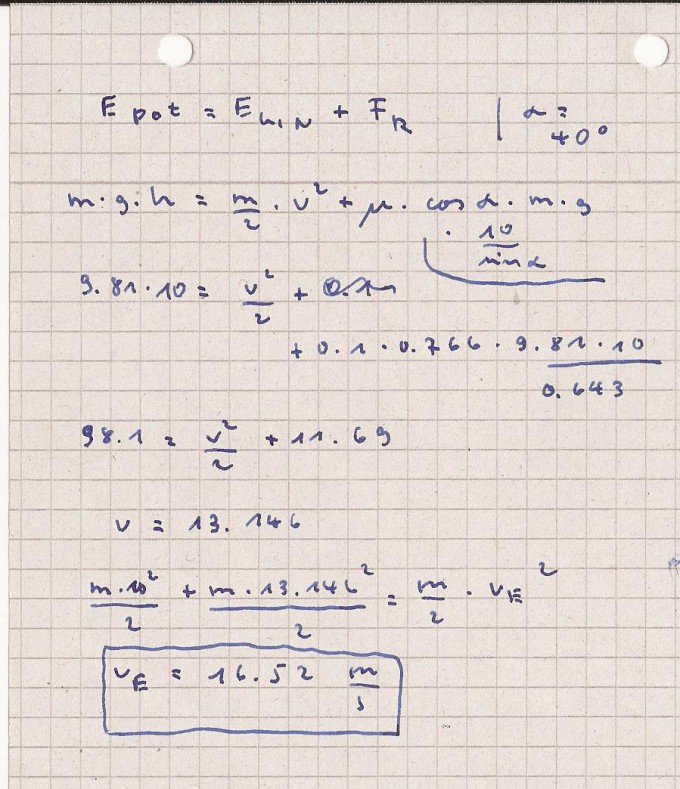 E pot = E kin + F R | α = 40°
m · g · h = m/2 · v² + μ · cos α · m · g · 10/sin α
9.81 · 10 = v²/2 + 0.1
+ 0.1 · 0.766 · 9.81 · 10 / 0.643
98.1 = v²/2 + 11.69
v = 13.146
m · 10²/2 + m · 13.146²/2 = m/2 · v_E²
v_E = 16.52 m/s